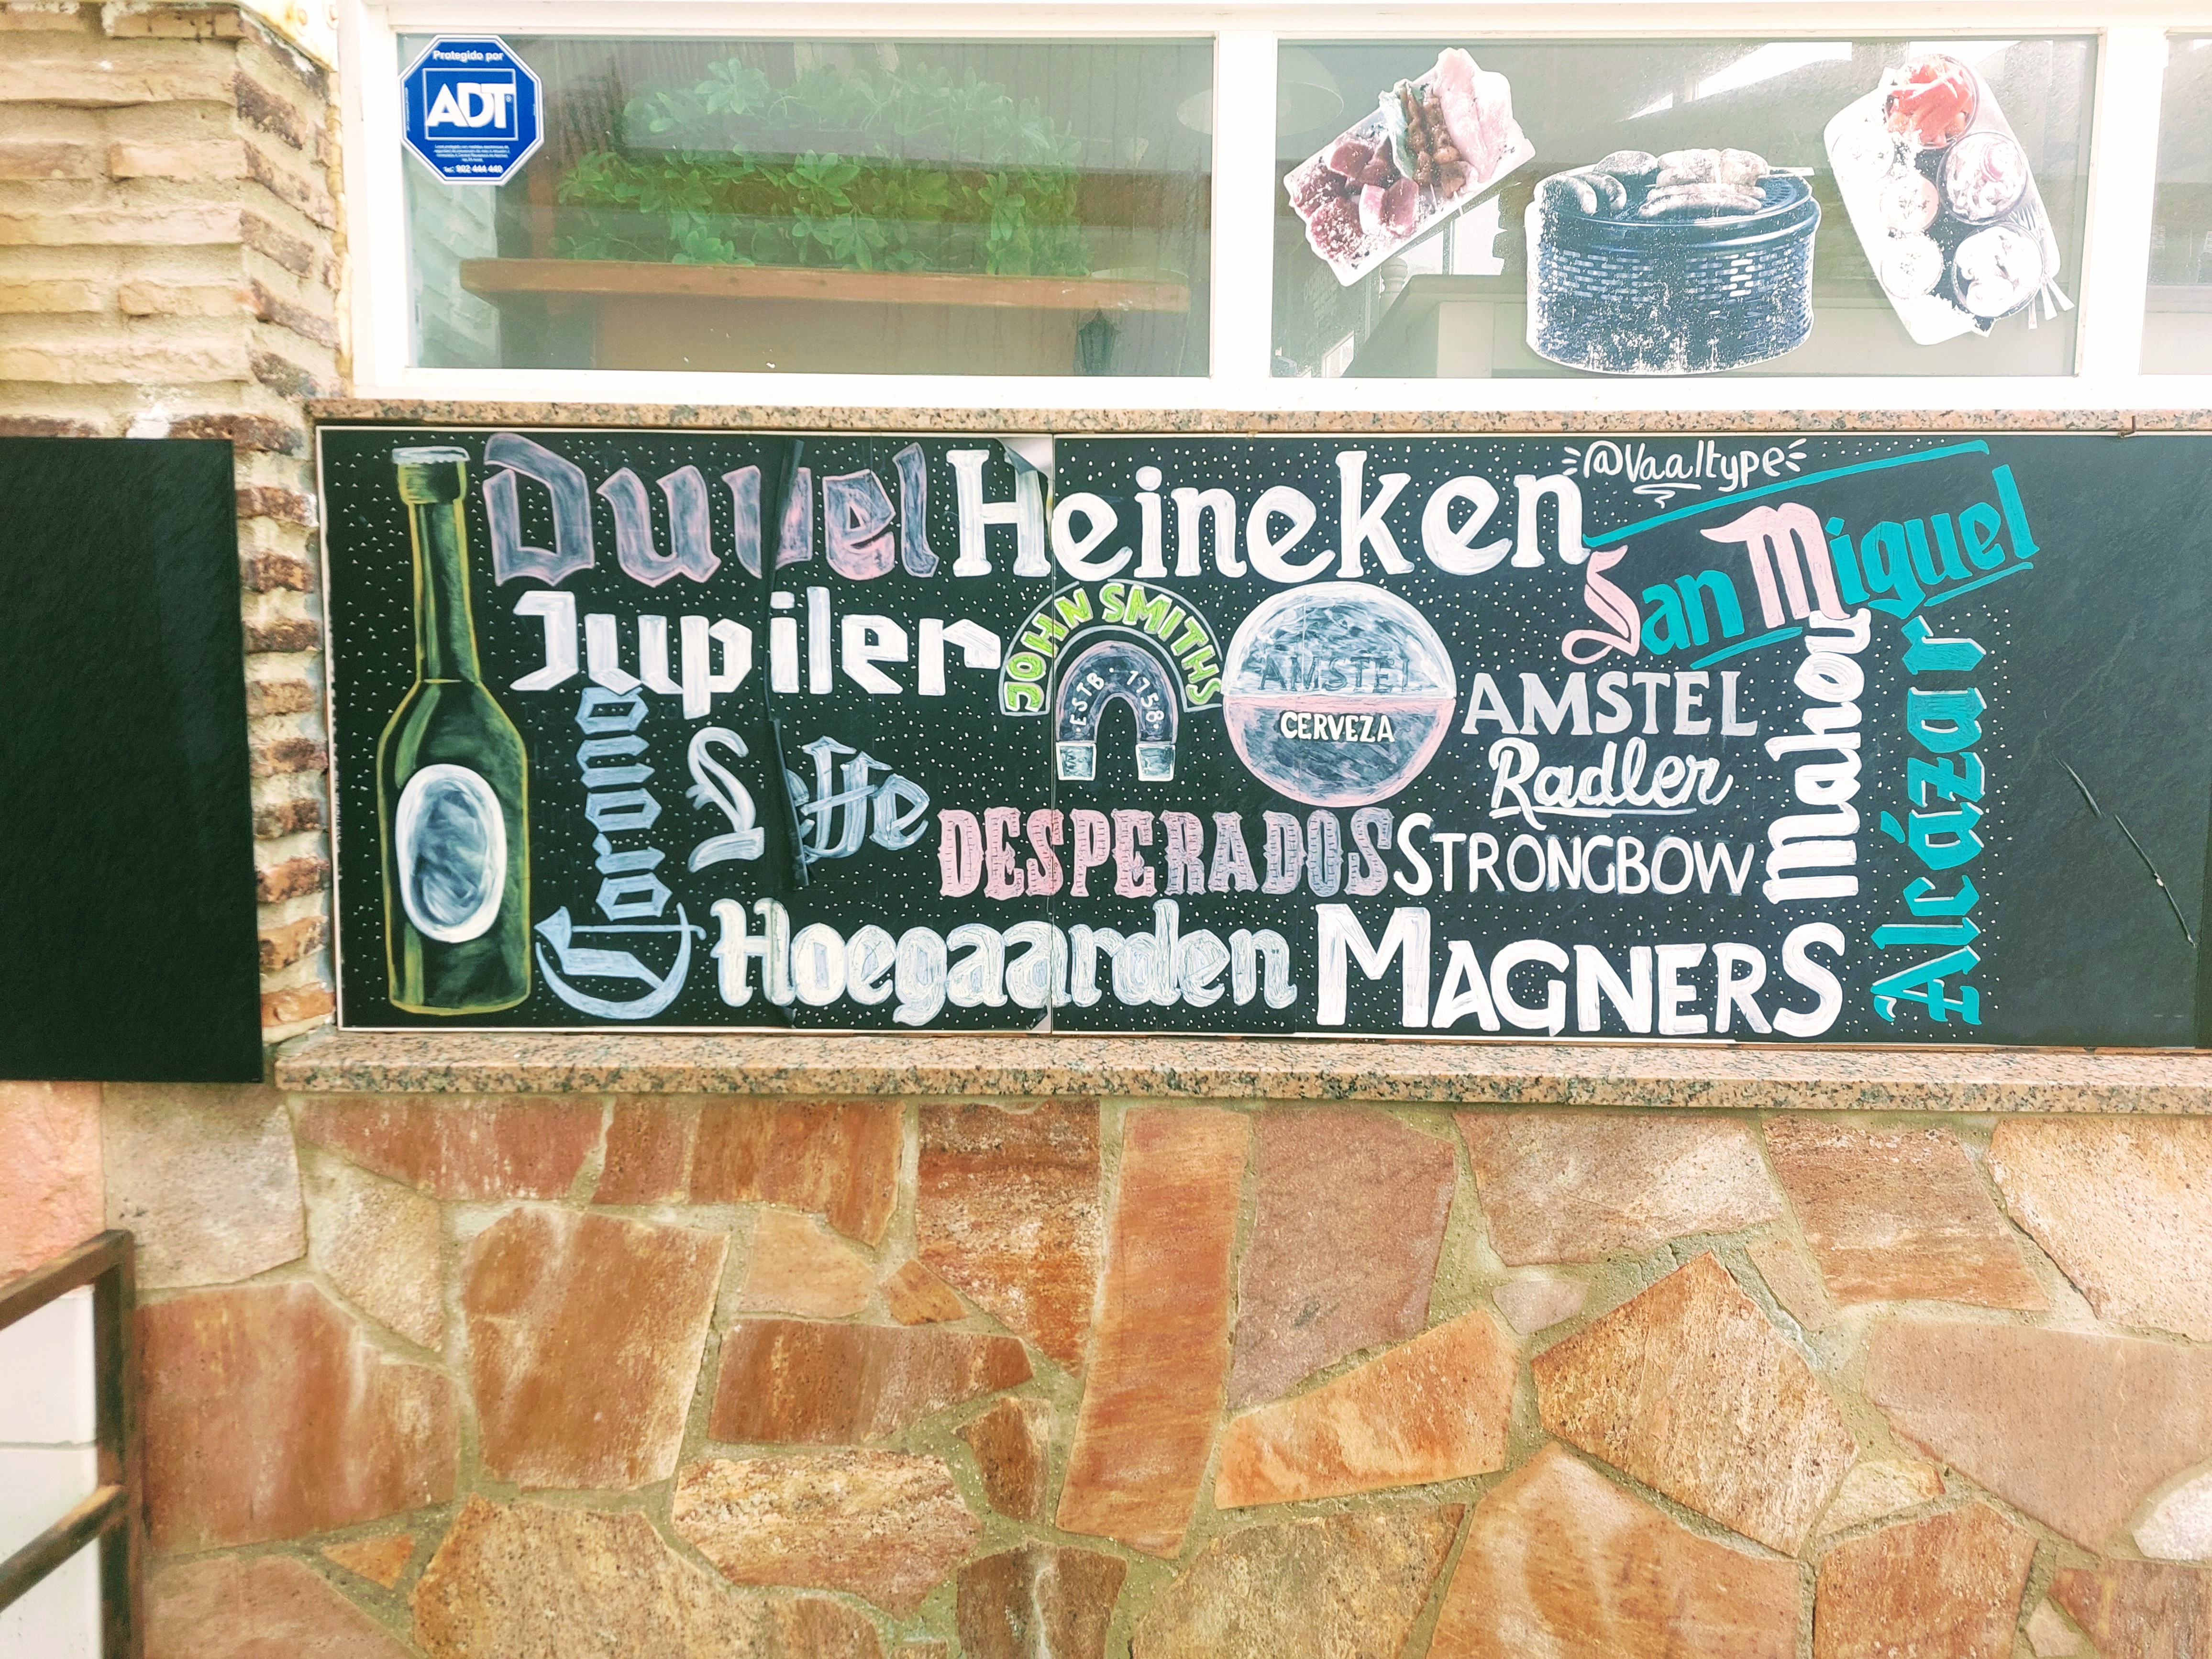 Protegido por
ADT
Tel.: 902 444 440
Duvel
Heineken
@Vaaltype
San Miguel
Jupiler
JOHN SMITHS
ESTB 1758
AMSTEL
CERVEZA
AMSTEL
Radler
Mahou
Alcázar
Corona
Leffe
DESPERADOS
STRONGBOW
Hoegaarden
MAGNERS